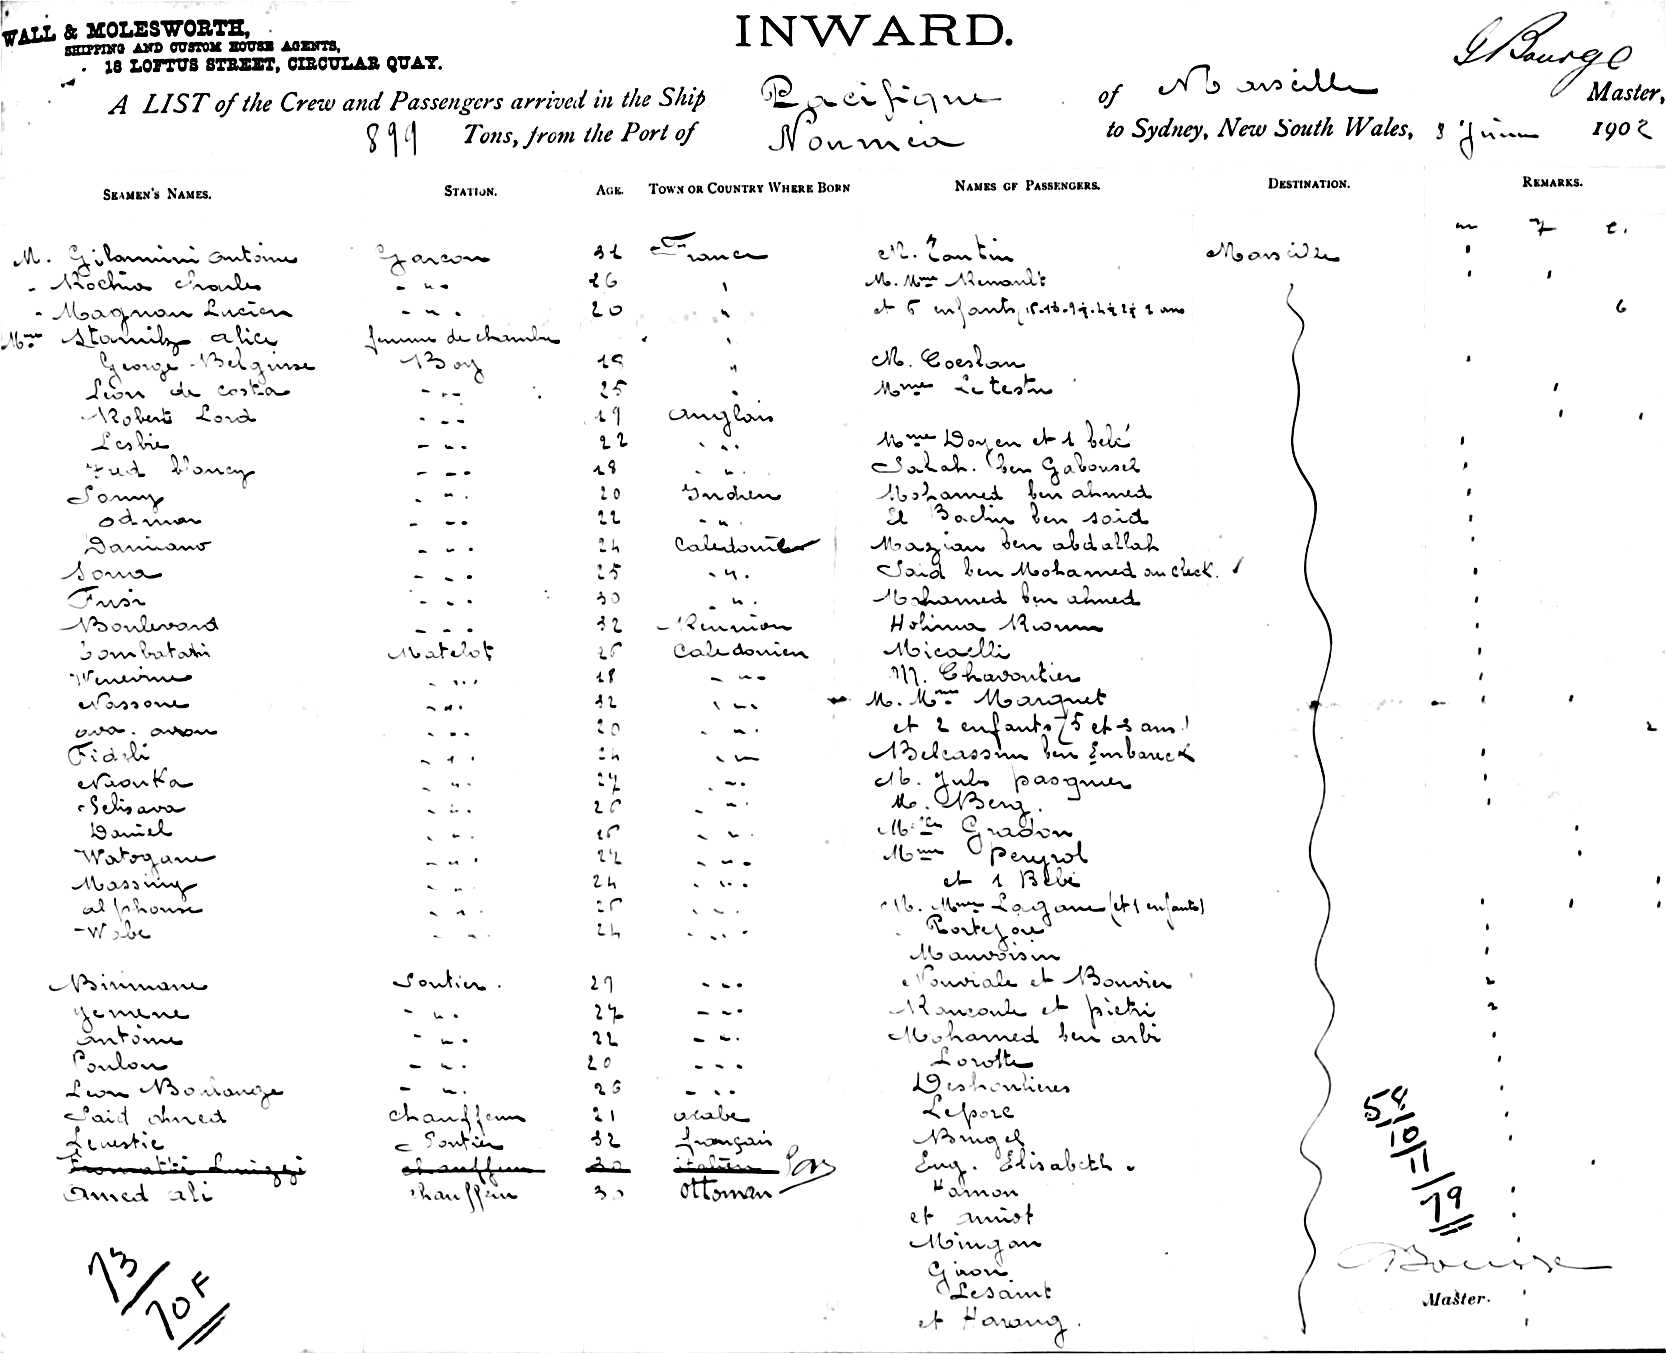 WALL & MOLESWORTH,
SHIPPING AND CUSTOM HOUSE AGENTS,
18 LOFTUS STREET, CIRCULAR QUAY.
INWARD.
G Bourge
A LIST of the Crew and Passengers arrived in the Ship Pacifique of Marseille Master,
899 Tons, from the Port of Noumea to Sydney, New South Wales, 3 Juin 1902
SEAMEN'S NAMES. STATION. AGE. TOWN OR COUNTRY WHERE BORN NAMES OF PASSENGERS. DESTINATION. REMARKS.
m f e.
M. Gilarmini Antoine Garcon 32 France M. Tantin Marseille
Charles - " - 26 " M. Mme Renault
- Magnan Lucien - " - 20 " et 6 enfants 6
Mme alice femme de chambre "
George Boy 19 " M.
Leon de costa - " - 25 " Mme Letestu
Robert Lord - " - 19 anglais
Leslie - " - 22 - " - Mme Doyen et 1 bébé
Fred - " - 18 - " - Salah ben
Sonny - " - 20 Indien Mohamed ben ahmed
odman - " - 22 - " - El Bachir ben said
Damiano - " - 24 Caledonien Mazian ben abdallah
Soma - " - 25 - " - Said ben Mohamed
- " - 30 - " - Mohamed ben ahmed
Boulevard - " - 32 Reunion
Matelot 26 Caledonien Micaelli
- " - 18 - " - M. Charontier
Nassone - " - 32 - " - M. Mme Marquet
- " - 20 - " - et 2 enfants (5 et 3 ans) 2
Fideli - " - 24 - " - Belcassem ben Embareck
Naouka - " - 27 - " - M. Jules pasquier
Selisava - " - 26 - " - M. Berg.
Daniel - " - - " - Mlle Gradon
Watogane - " - 22 - " - Mme peyrol
Massing - " - 24 - " - et 1 Bébé
alphonse - " - 26 - " - M. Mme Lagane (et 1 enfants)
Wabe - " - 24 - " -
Mauvoisin
Birimane Soutier. 29 - " - Nouviale et Bouvier 2
Jemene - " - 27 - " - et pietri 2
antoine - " - 22 - " - Mohamed ben arbi
Poulon - " - 20 - " - Lorotte
Leon Boulange - " - 26 - " - Deshoulieres
Said ahmed chauffeur 21 arabe Lepore
Soutier 32 français
Luizzi chauffeur 30 italien Eug. Elisabeth
Amed ali chauffeur 30 ottoman Hamon
et amiot
Mingan
Giron
Lesaint
et Harang.
58
10
11
79
73
70 F
Bourge
Master.